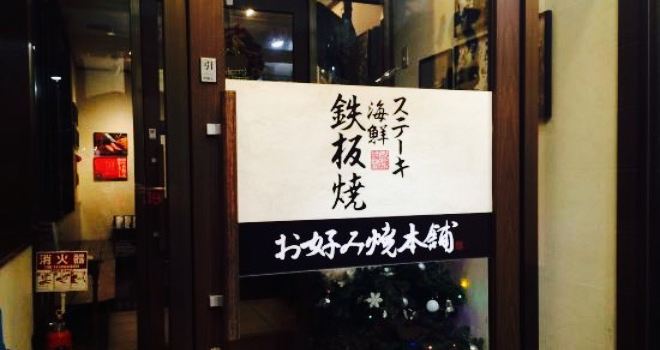 ステーキ
海鮮
鉄板焼
お好み焼本舗
引
消火器